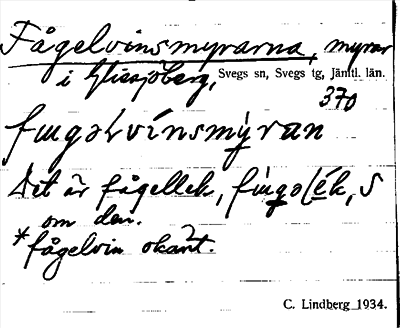 Fågelvinsmyrarna, myrar
i Glissjöberg, Svegs sn, Svegs tg, Jämtl. län.
370
fuugəlvínsmỳran
Det är fågellek, fuugəlék, S
om den.
*fågelvin okänt.
C. Lindberg 1934.